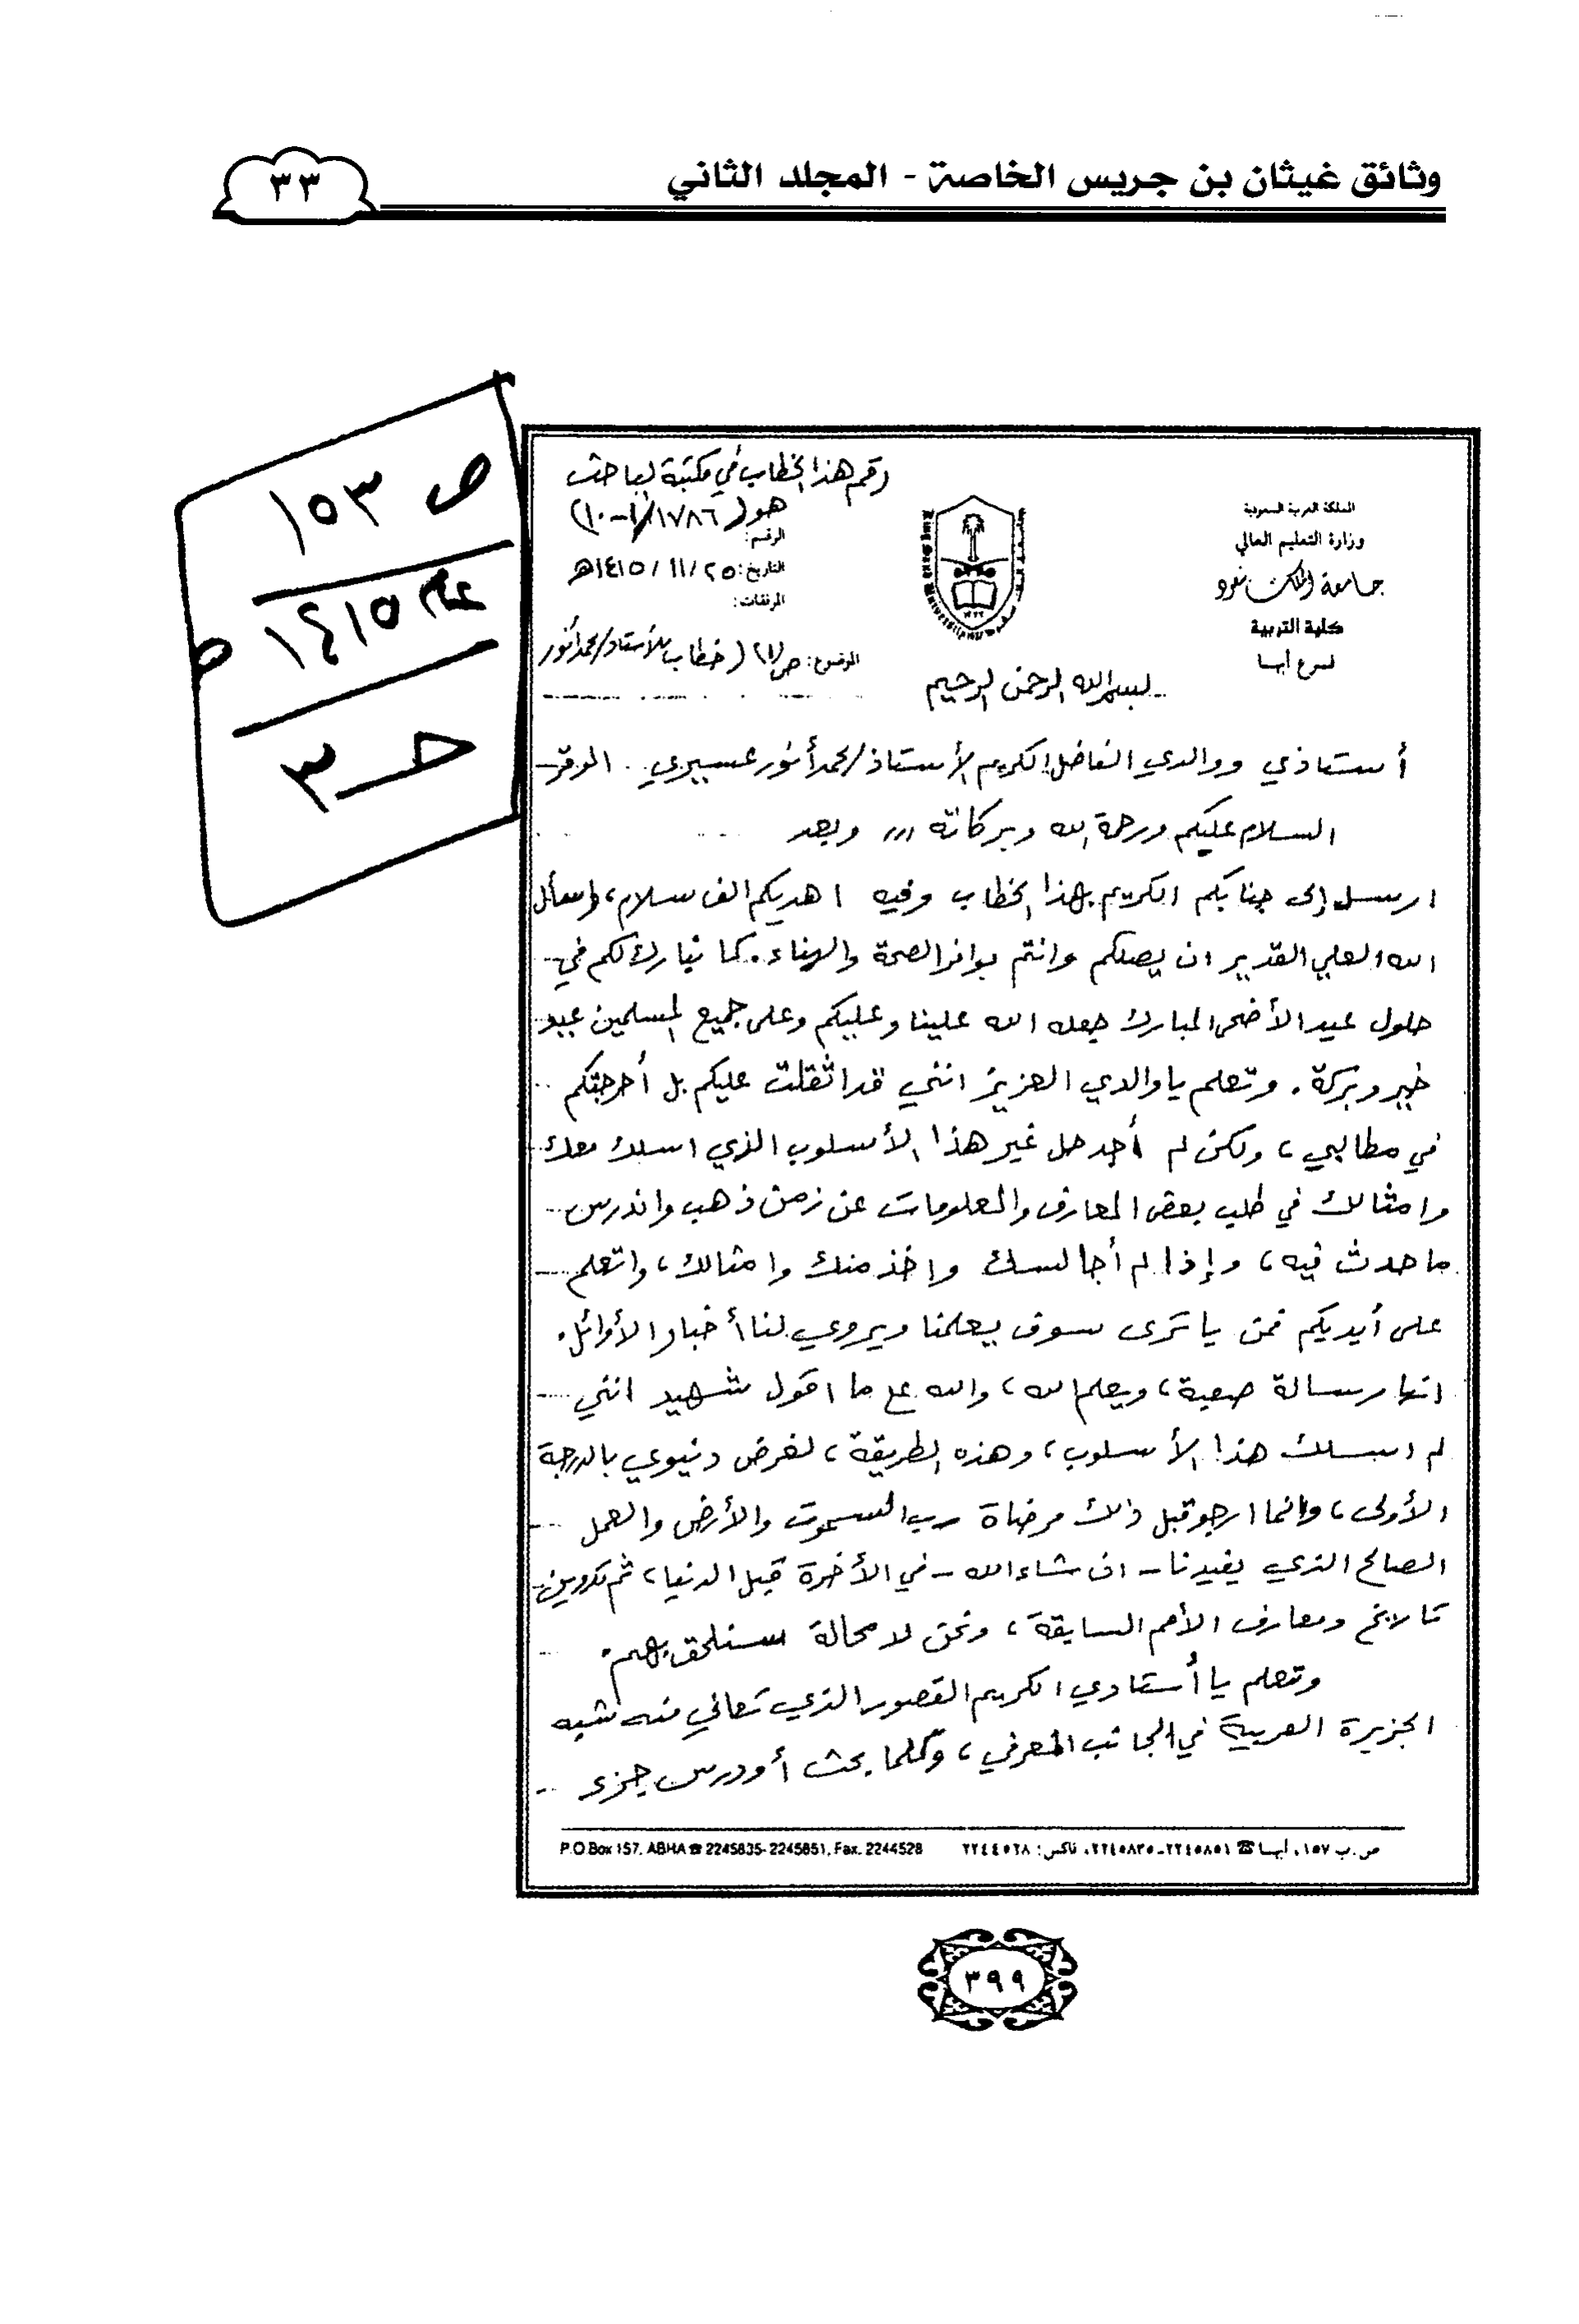 وثائق غيثان بن جريس الخاصة - المجلد الثاني
٣٣
ص ١٥٣
عام ١٤١٥ هـ
حـ ٣
رقم هذا الخطاب في مكتبة الباحث
هو (١٧٨٦/١-١٠)
المملكة العربية السعودية
وزارة التعليم العالي
جامعة الملك سعود
كلية التربية
فرع أبها
الرقم:
التاريخ: ٢٥ / ١١ / ١٤١٥هـ
المرفقات:
الموضوع: ص(١) (خطاب للأستاذ/محمد أنور
بسم الله الرحمن الرحيم
أستاذي ووالدي الفاضل الكريم الأستاذ/محمد أنور عسيري .. الموقر
السلام عليكم ورحمة الله وبركاته ,,, وبعد
ارسل إلى جنابكم الكريم بهذا الخطاب وفيه اهديكم الف سلام، واسأل
الله العلي القدير ان يصلكم وانتم بوافر الصحة والهناء. كما نبارك لكم في
حلول عيد الأضحى المبارك جعله الله علينا وعليكم وعلى جميع المسلمين عيد
خير وبركة. وتعلم يا والدي العزيز انني قد اثقلت عليكم بل أحرجتكم
في مطالبي، ولكن لم أجد حل غير هذا الأسلوب الذي اسلك معك
وامثالك في طلب بعض المعارف والمعلومات عن زمن ذهب واندرس
ما حدث فيه، وإذا لم أجالسك واخذ منك وامثالك، واتعلم
على أيديكم فمن يا ترى سوف يعلمنا ويروي لنا أخبار الأوائل.
انها رسالة صعبة، ويعلم الله، والله على ما اقول شهيد انني
لم اسلك هذا الأسلوب، وهذه الطريقة، لغرض دنيوي بالدرجة
الأولى، وانما ارجو قبل ذلك مرضاة رب السموت والأرض والعمل
الصالح الذي يفيدنا - ان شاء الله - في الأخرة قبل الدنيا، ثم تدوين
تاريخ ومعارف الأمم السابقة، ونحن لا محالة سنلحق بهم.
وتعلم يا أستاذي الكريم القصور الذي تعاني منه شبه
الجزيرة العربية في الجانب المعرفي، وكلما بحث أو درس جزء
P.O.Box 157, ABHA ☎ 2245835-2245851, Fax. 2244528
ص.ب ١٥٧، أبها ☎ ٢٢٤٥٨٥١-٢٢٤٥٨٣٥، فاكس: ٢٢٤٤٥٢٨
٣٩٩